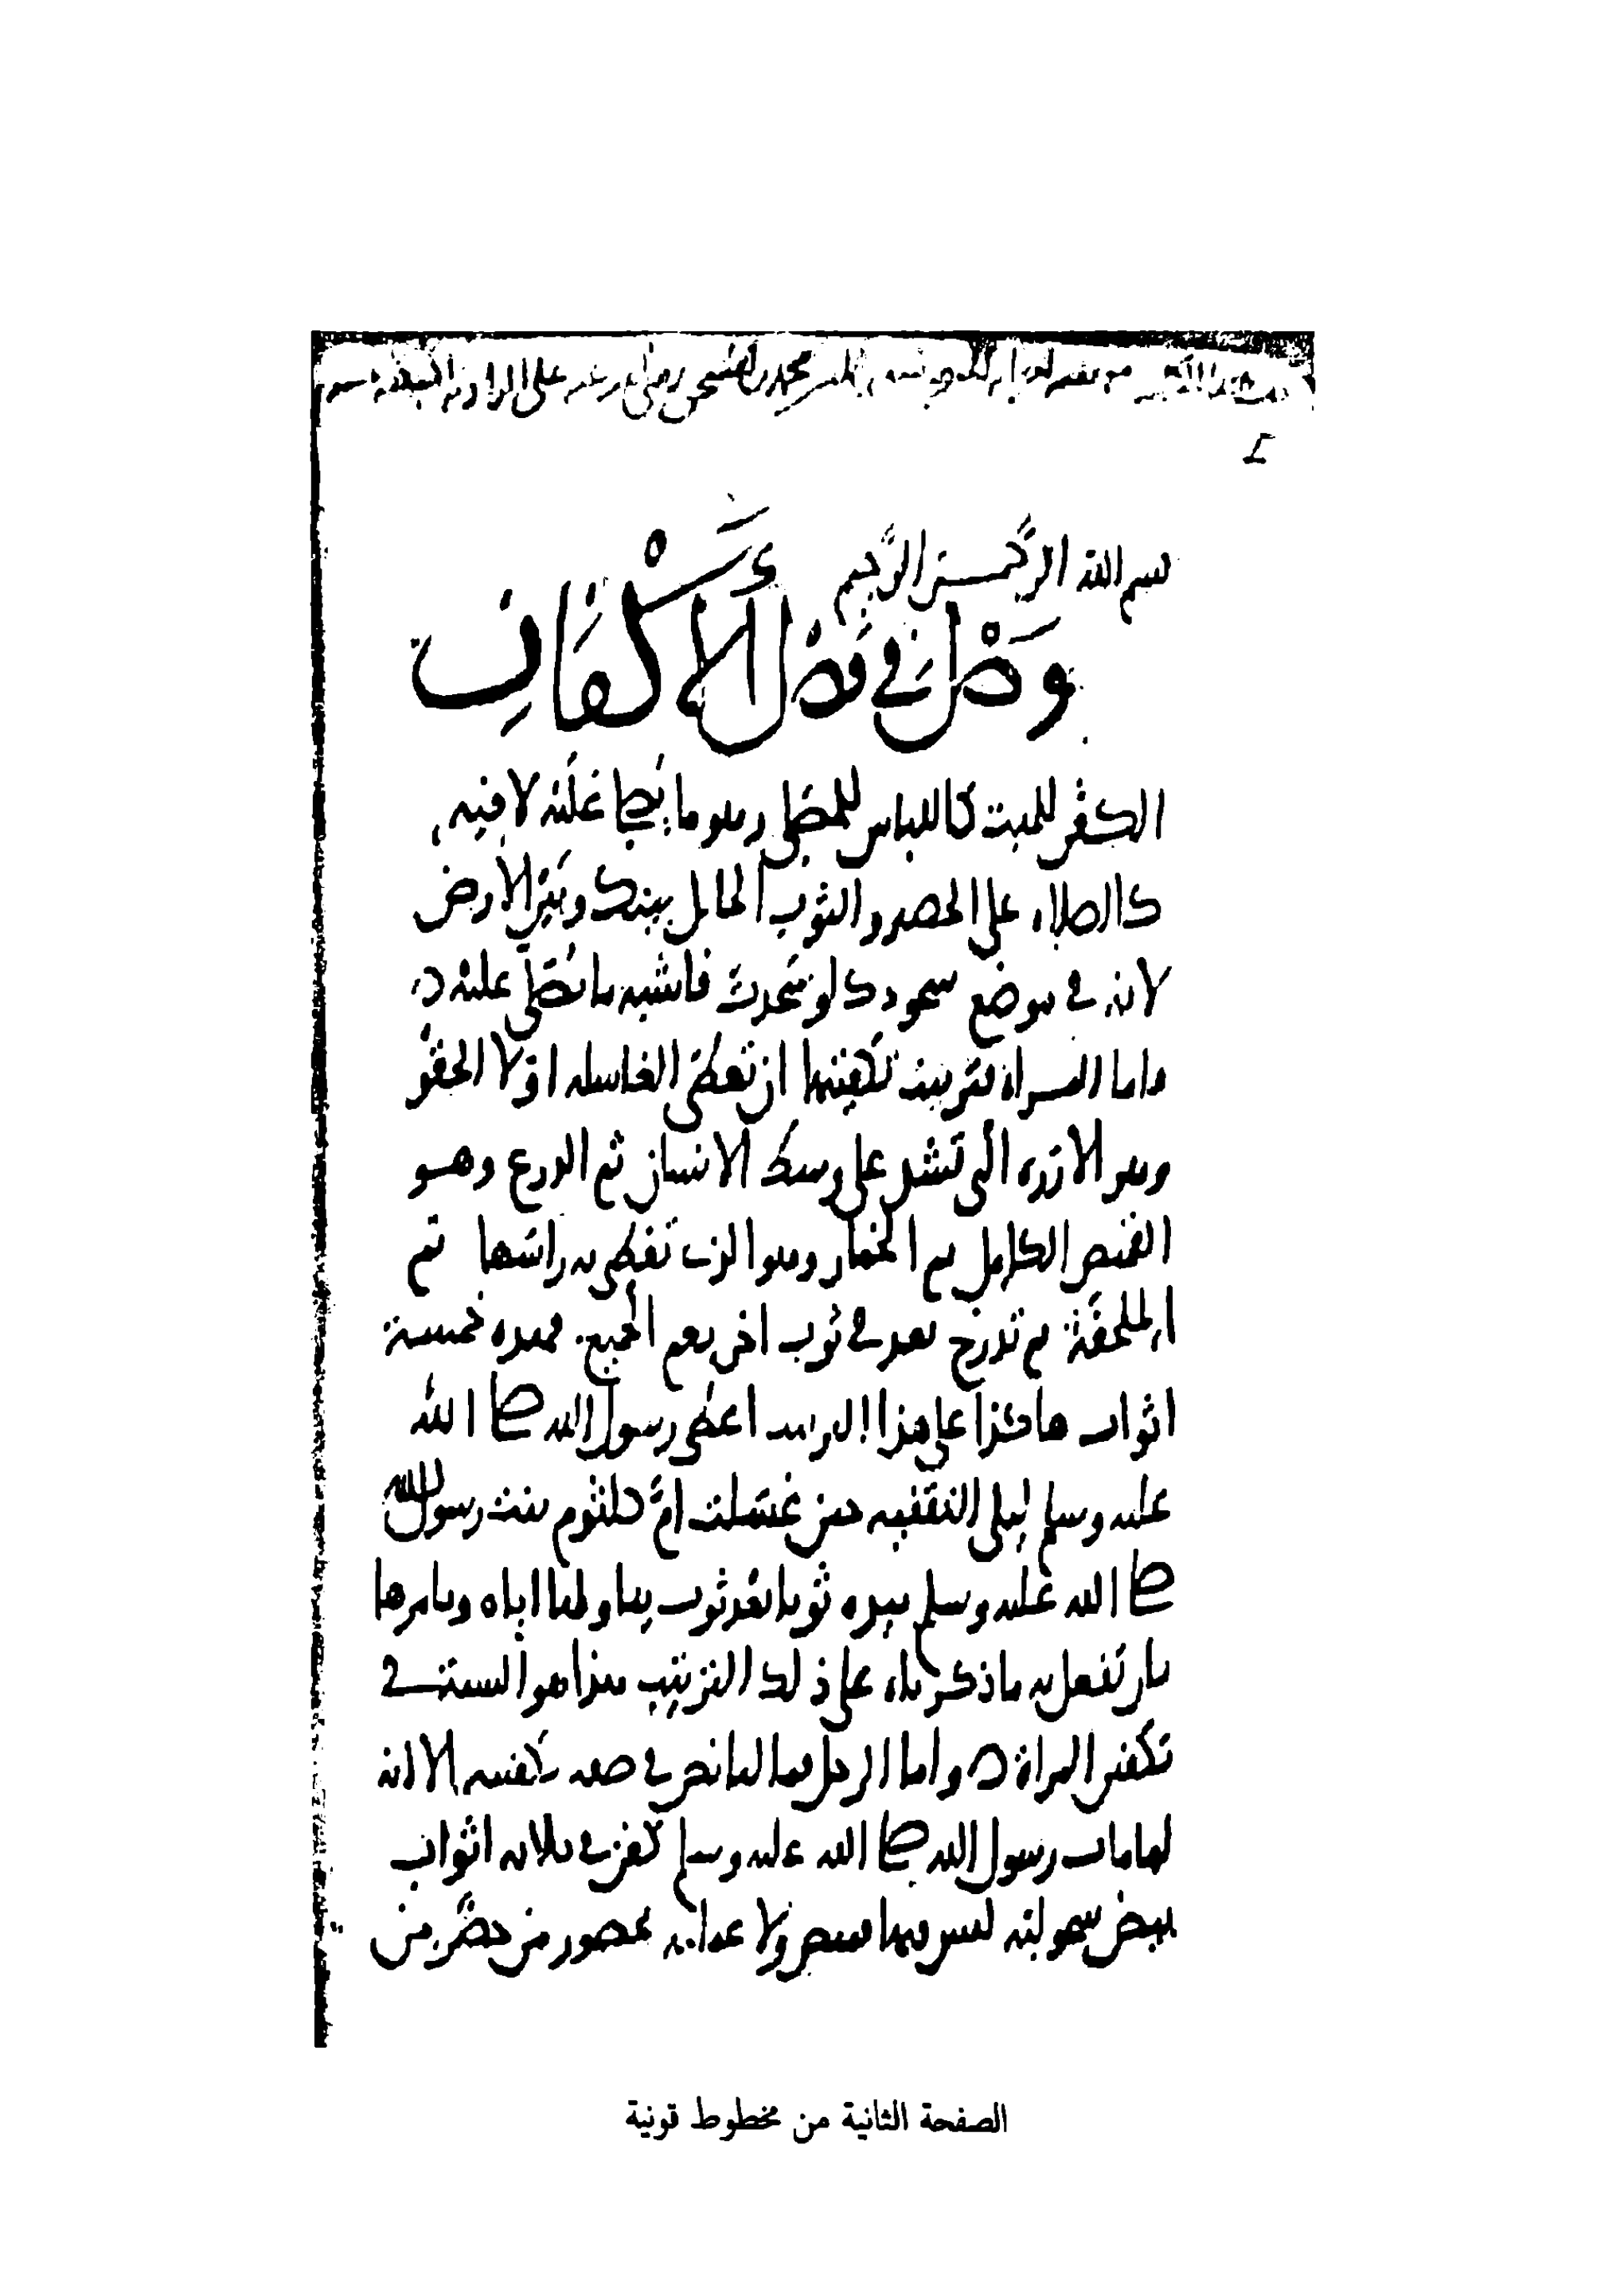 محمد بن اسحق رضي الله عنه على الزاوية
٢
بسم الله الرَّحمن الرَّحيم
وَصْل في فَصْل الأَكْفَانِ
الكفن للميت كاللباس للمصلى وهو ما يُصلى عَليْه لا فيه
كالصلاه على الحصير والثوب الحائل بينك وبين الأرض
لانه في موضع سجودك لو سَجدت فاشبه ما يُصَلى عليْه
واما المراة فترتيب تكفينها ان تُعطَى الغاسله اوّلا الحقو
وهو الازره التى تشد على وسط الانسان ثم الدرع وهو
القميص الكامل ثم الخمار وهو الذي تغطى به راسَها ثم
الملحفَة ثم تدرج بعد في ثوب اخر يعم الجميع فهذه خمسة
اثواب هاكذا على هذا الترتيب اعطى رسول الله صلى الله
عليه وسلم ليلى الثقفيه حين غسّلت امّ كلثوم بنت رسول الله
صلى الله عليه وسلم بيده ثوبا بعْد ثوب يناولها اياه ويامرها
بان تفعل به ما ذكرناه على ذلك الترتيب هذا هو السنة في
تكفين المراة واما الرجل فما لنا نص في صفه تكفينه الا انه
لما مات رسول الله صلى الله عليه وسلم كفن في ثلاثه اثواب
بيض سحوليه ليس فيها قميص ولا عمامه بحضور من حضَر من
الصفحة الثانية من مخطوط قونية